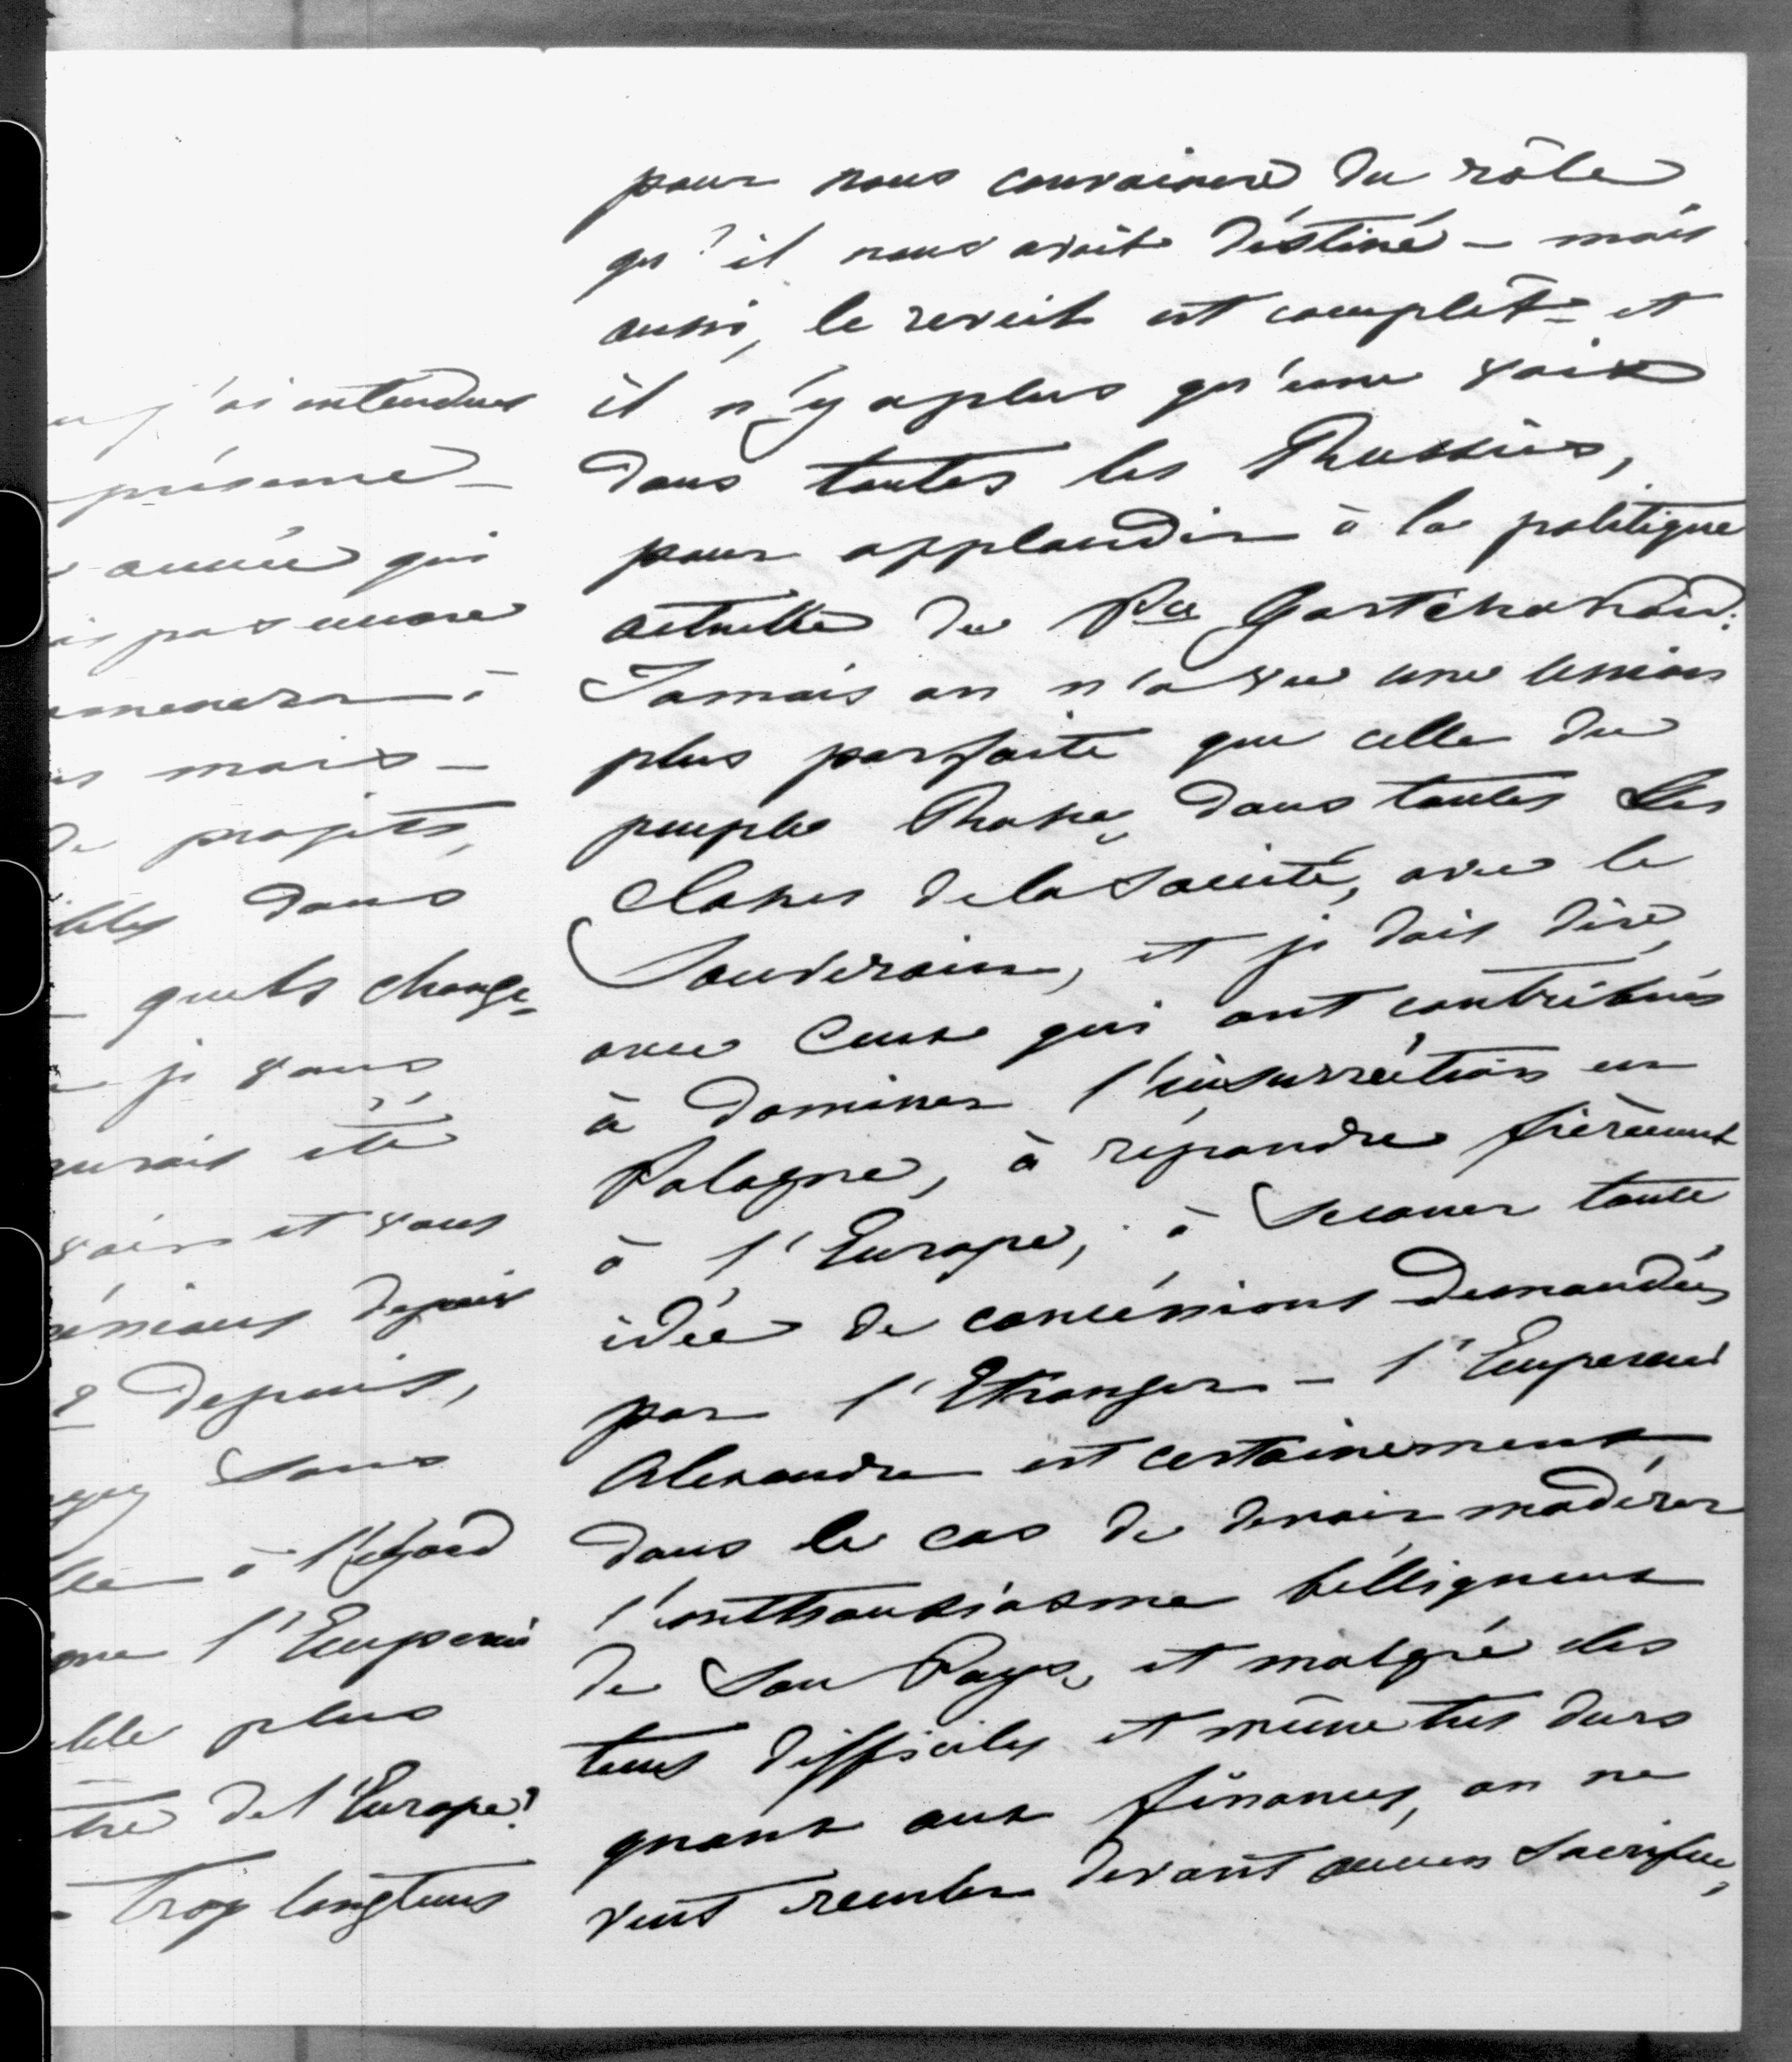 j'ai entendues
présence –
année qui
pas encore
amenera à
mais –
de projets,
dans
quels change-
je vous
aurais été
voir et vous
depuis
depuis,
sans
à l'égard
que l'Empereur
plus
de l'Europe?
– trop longtems
pour nous convaincre du rôle
qu'il nous avait déstiné – mais
aussi, le reveil est complêt – et
il n'y a plus qu'une voix
dans toutes les Russies,
pour applaudir à la politique
actuelle du Pce Gortchakow.
Jamais on n'a vu une union
plus parfaite que celle du
peuple Russe, dans toutes les
Classes de la Societé, avec le
Souverain, et je dois dire,
avec Ceux qui ont contribués
à dominer l'insurrection en
Pologne, à répondre fièrement
à l'Europe, à Secouer toute
idée de concéssions demandées
par l'Etranger – l'Empereur
Alexandre est certainement,
dans le cas de devoir modérer
l'enthousiasme bélliqueux
de Son Pays, et malgré les
tems difficiles et même très durs
quant aux finances, on ne
veut reculer devant aucun Sacrifice,